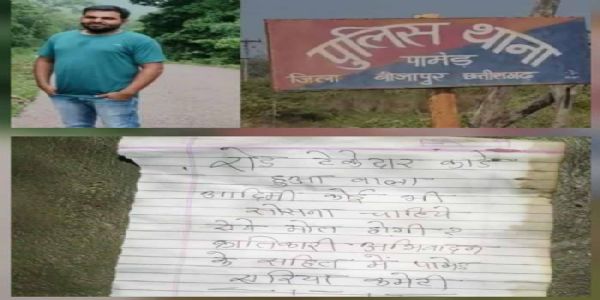 पुलिस थाना
पामेड़
जिला बीजापुर छत्तीसगढ़
रोड ठेकेदार
हुआ वाला
आदिमी कोई भी
चाहिये
मौत होगी
क्रांतिकारी अभिवादन
के साहित में पामेड
एरिया कमेटी